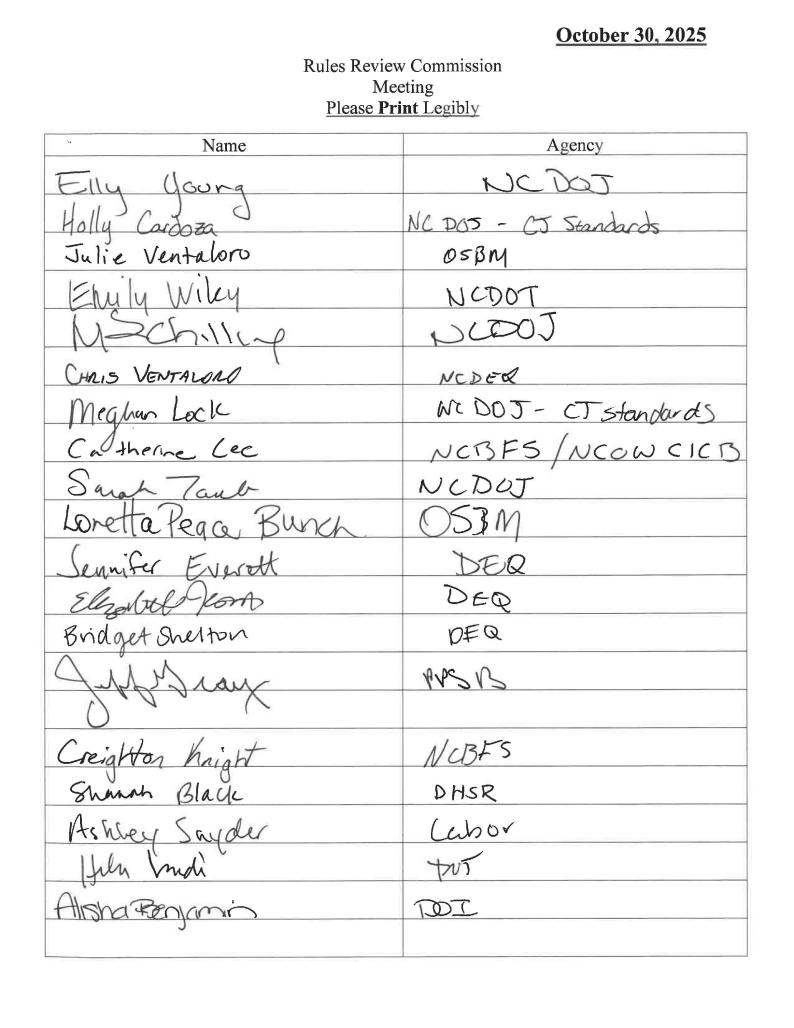 October 30, 2025
Rules Review Commission
Meeting
Please Print Legibly
Name Agency
Elly Young NC DOJ
Holly Cardoza NC DOJ - CJ Standards
Julie Ventaloro OSBM
Emily Wiley NCDOT
M Schilling NCDOJ
CHRIS VENTALORO NCDEQ
Meghan Lock NC DOJ - CJ standards
Catherine Lee NCBFS / NCOWCICB
Sarah Taub NCDOJ
Loretta Peace Bunch OSBM
Jennifer Everett DEQ
Elizabeth DEQ
Bridget Shelton DEQ
Jeff Gray PPSB
Creighton Knight NCBFS
Shannah Black DHSR
Ashley Snyder Labor
DOI
Alisha Benjamin DOI